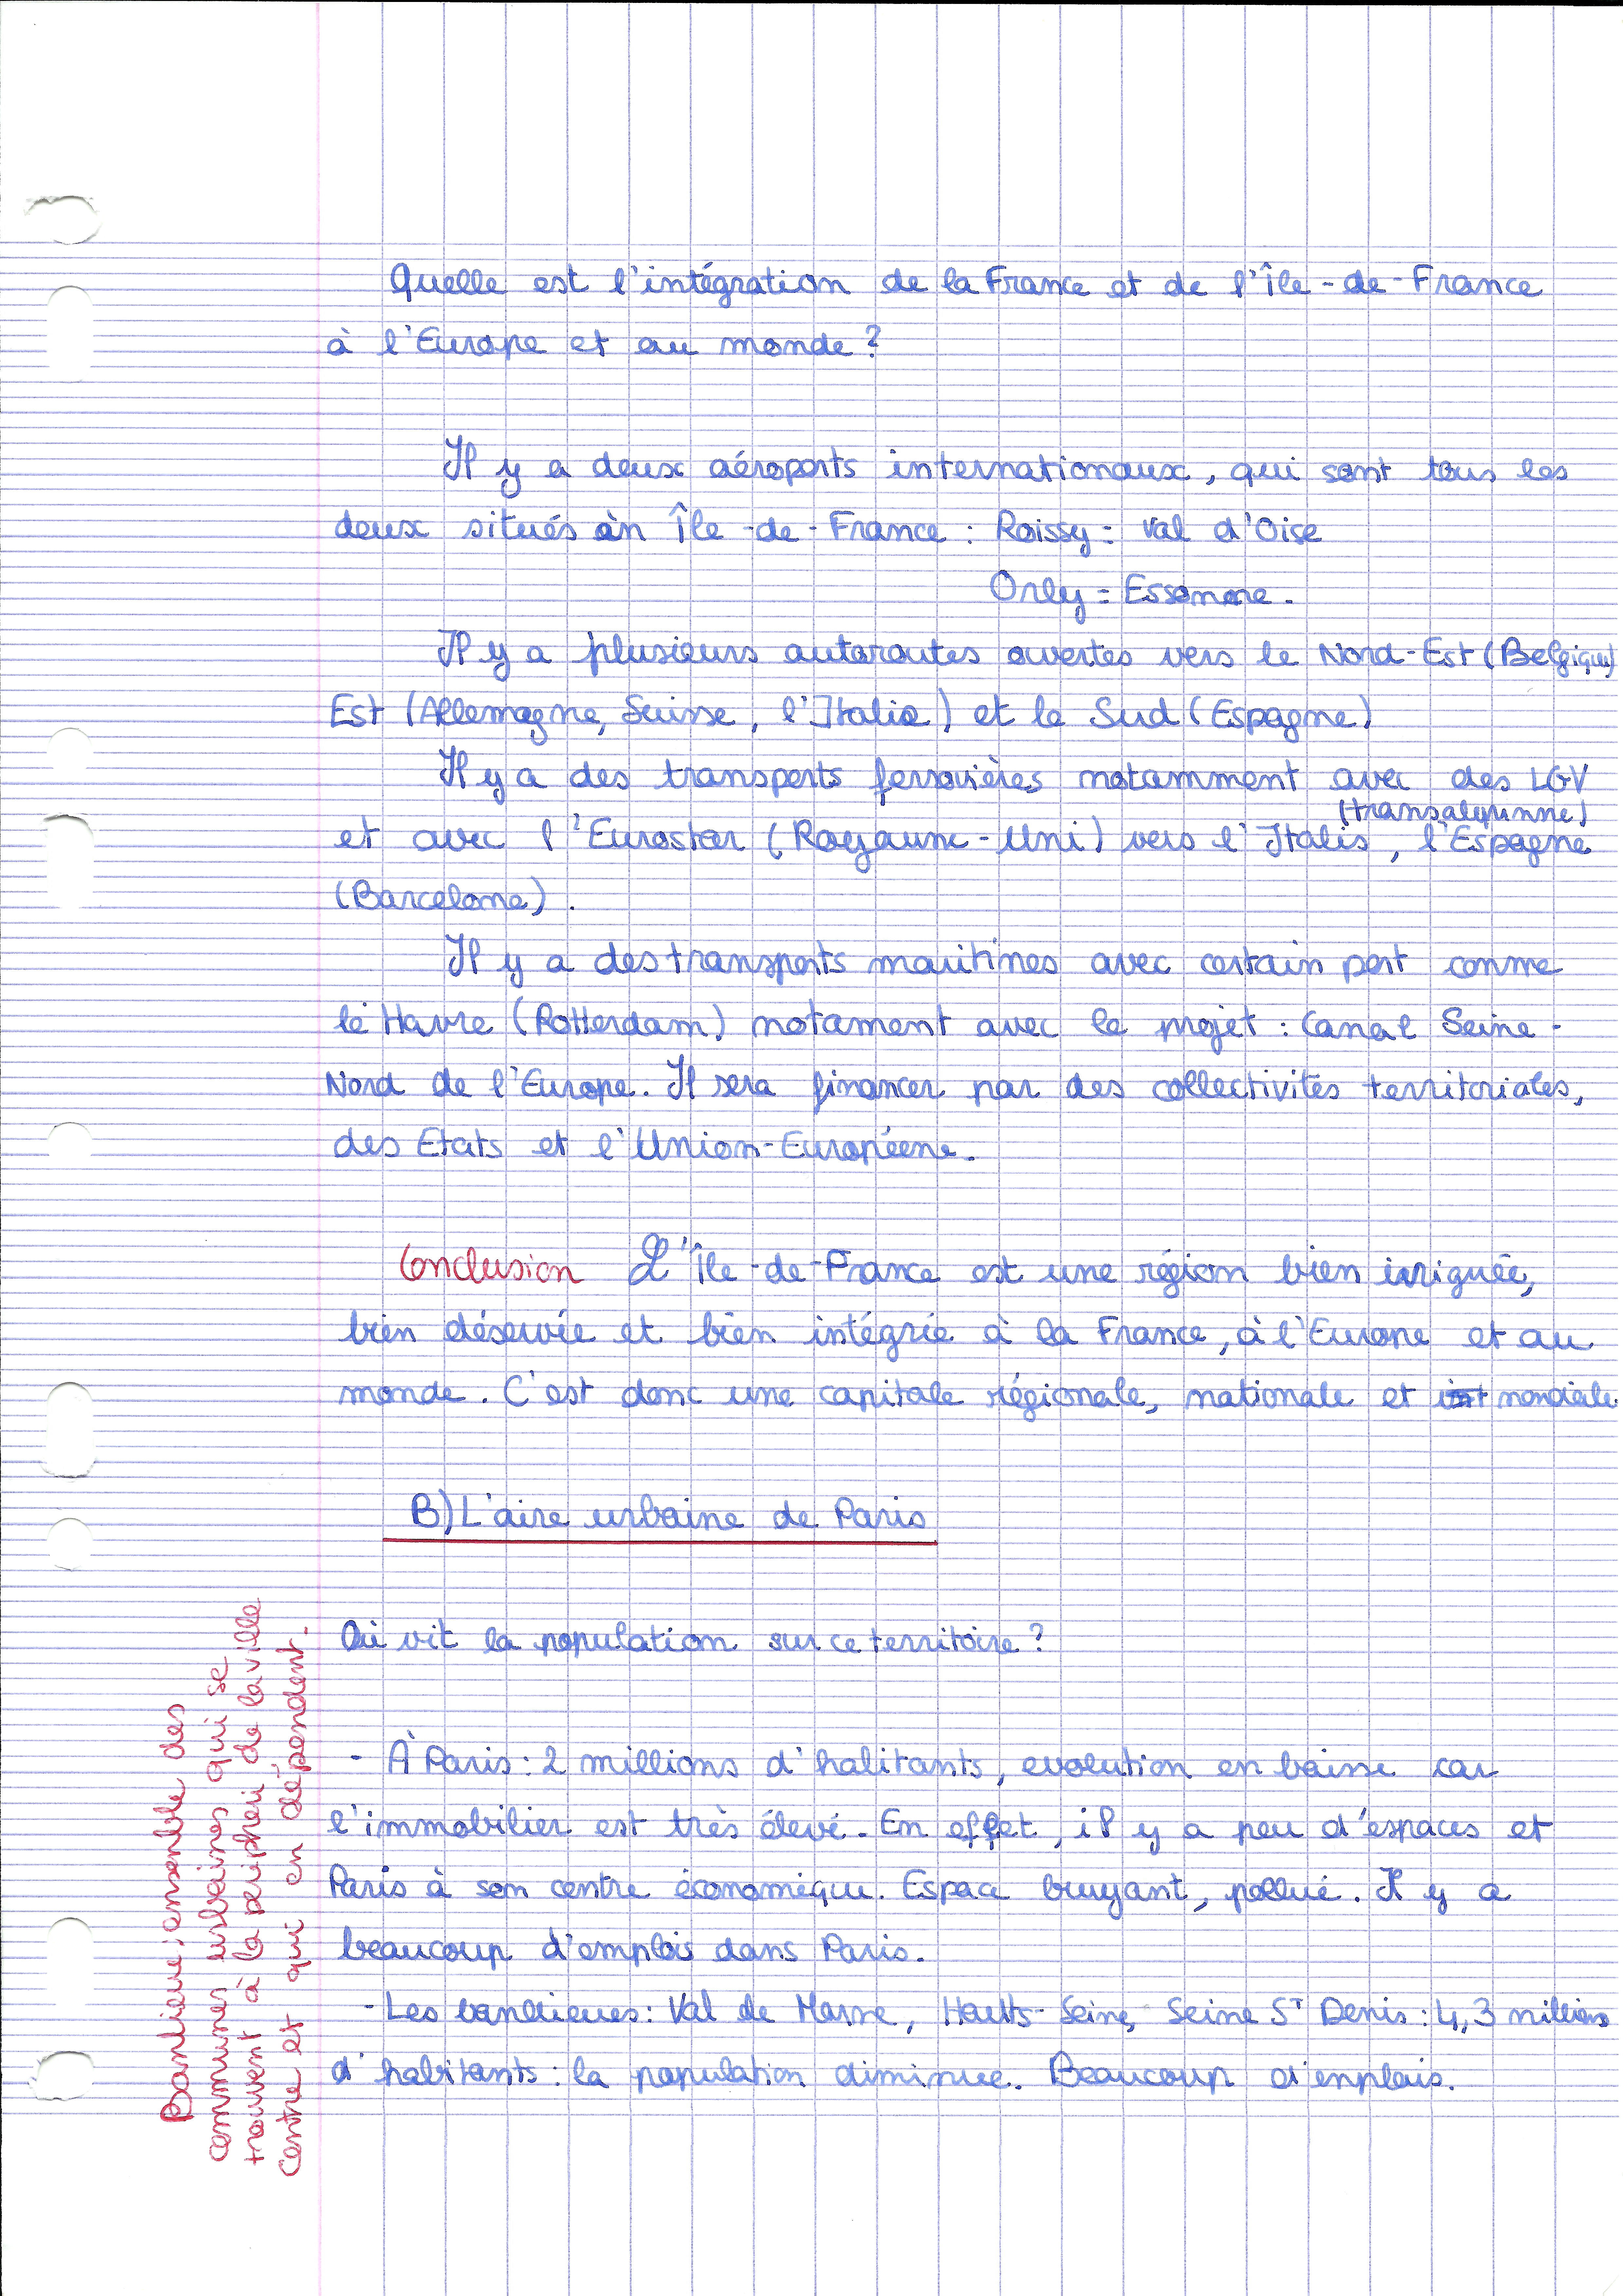 Quelle est l'intégration de la France et de l'Île-de-France
à l'Europe et au monde ?
Il y a deux aéroports internationaux, qui sont tous les
deux situés en Île-de-France : Roissy = Val d'Oise
Orly = Essonne.
Il y a plusieurs autoroutes ouvertes vers le Nord-Est (Belgique)
Est (Allemagne, Suisse, l'Italie) et le Sud (Espagne)
Il y a des transports ferrovières notamment avec des LGV
(transalpinne)
et avec l'Eurostar (Royaume-Uni) vers l'Italie, l'Espagne
(Barcelone).
Il y a des transports maritimes avec certain port comme
le Havre (Rotterdam) notament avec le projet : Canal Seine-
Nord de l'Europe. Il sera financer par des collectivités territoriales,
des Etats et l'Union-Européene.
Conclusion L'Île-de-France est une région bien irriguée,
bien déservie et bien intégrée à la France, à l'Europe et au
monde. C'est donc une capitale régionale, nationale et mondiale
B) L'aire urbaine de Paris
Où vit la population sur ce territoire ?
- À Paris : 2 millions d'habitants, evolution en baisse car
l'immobilier est très élevé. En effet, il y a peu d'espaces et
Paris à son centre économique. Espace bruyant, pollué. Il y a
beaucoup d'emplois dans Paris.
- Les banlieues : Val de Marne, Hauts-Seine, Seine St Denis : 4,3 millions
d'habitants : la population diminue. Beaucoup d'emplois.
Banlieue : ensemble des
communes urbaines qui se
trouvent à la périphéri de la ville
centre et qui en dépendent.